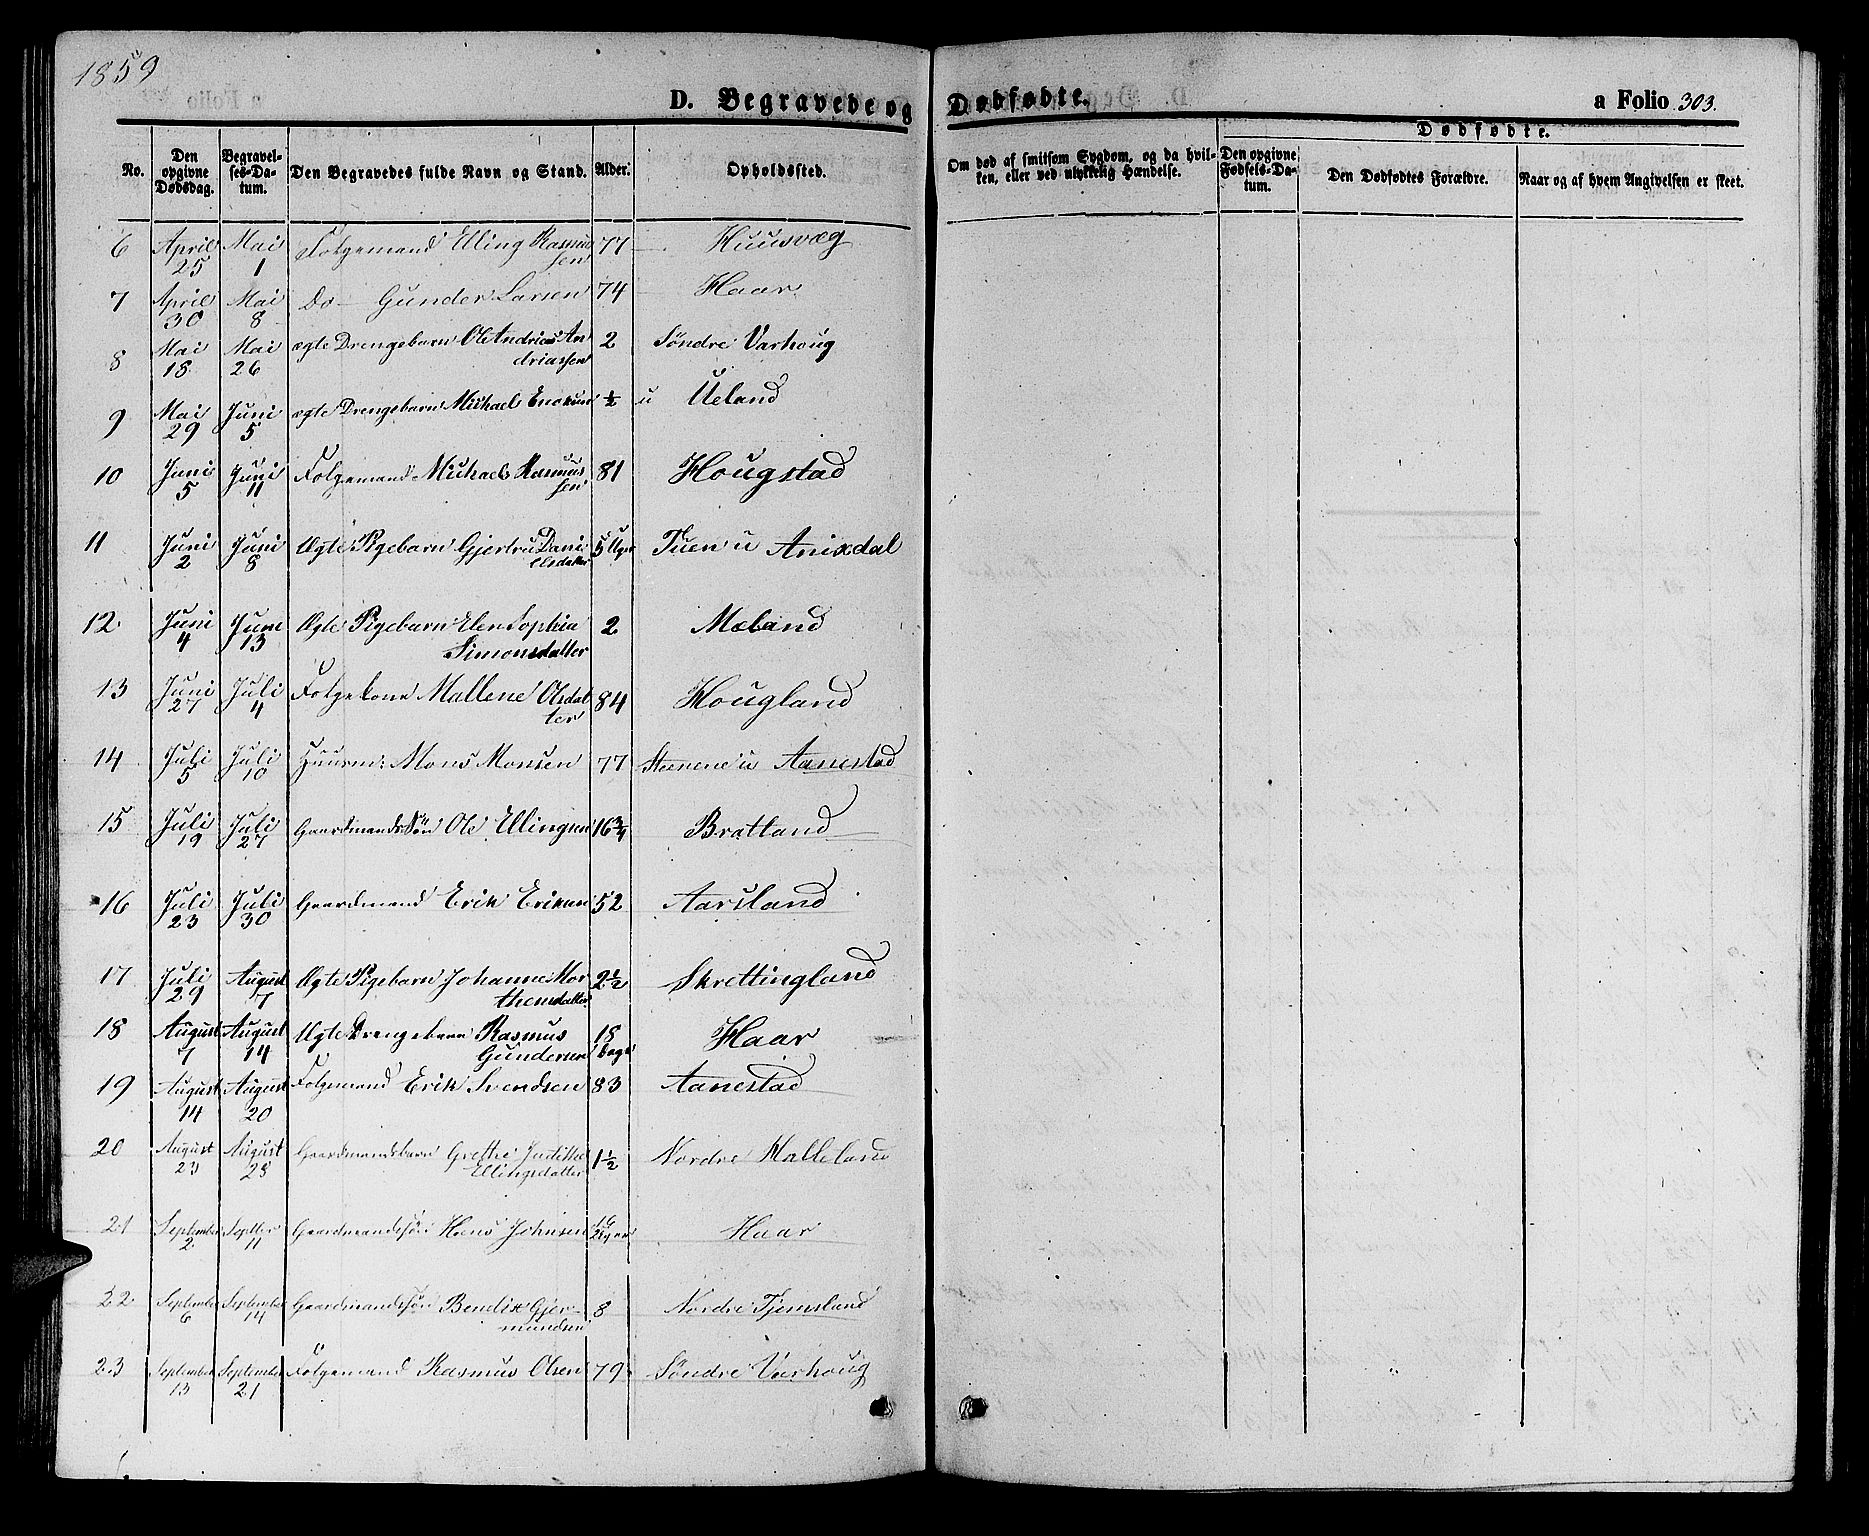 1859
D. Begravede og Dødfødte.
a Folio 303.
Dødfødte.
No. | Den opgivne Dødsdag. | Begravelses-Datum. | Den Begravedes fulde Navn og Stand. | Alder. | Opholdssted. | Om død af smitsom Sygdom, og da hvilken, eller ved ulykkelig Hændelse. | Den opgivne Fødsels-Datum. | Den Dødfødtes Forældre. | Naar og af hvem Angivelsen er skeet.
6 April 25 Mai 1 Folgemand Elling Rasmussen 77 Huusvæg
7 April 30 Mai 8 Do Gunder Larsen 74 Haar
8 Mai 18 Mai 26 ægte Drengebarn Ole Andrias Andriassen 2 Søndre Varhoug
9 Mai 29 Juni 5 ægte Drengebarn Michael ½ u Ueland
10 Juni 5 Juni 11 Folgemand Michael Rasmussen 81 Hougstad
11 Juni 2 Juni 8 Ægte Pigebarn Gjertru Danielsdatter 5 Uger Tuen u Anixdal
12 Juni 4 Juni 13 Ægte Pigebarn Elen Sophia Simonsdatter 2 Mæland
13 Juni 27 Juli 4 Folgekone Mallene Olsdatter 84 Hougland
14 Juli 5 Juli 10 Huusm: Mons Monsen 77 Steenene u Aanestad
15 Juli 19 Juli 27 Gaardmands Søn Ole Ellingsen 16¾ Bratland
16 Juli 23 Juli 30 Gaardmand Erik Eriksen 52 Aarsland
17 Juli 29 August 7 Ægte Pigebarn Johanne Morthensdatter 2½ Skrettingland
18 August 7 August 14 Ægte Drengebarn Rasmus Gundersen 18 Dage Haar
19 August 14 August 20 Folgemand Erik Svendsen 83 Aanestad
20 August 23 August 28 Gaardmandsbarn Grethe Ellingsdatter 1½ Nordre Malleland
21 September 2 Septbr 11 Gaardmandssön Hans Johnsen Haar
22 September 6 September 14 Gaardmandssön Bendix Gjermundsen 8 Nordre Tjemsland
23 September 13 September 21 Folgemand Rasmus Olsen 79 Söndre Varhoug